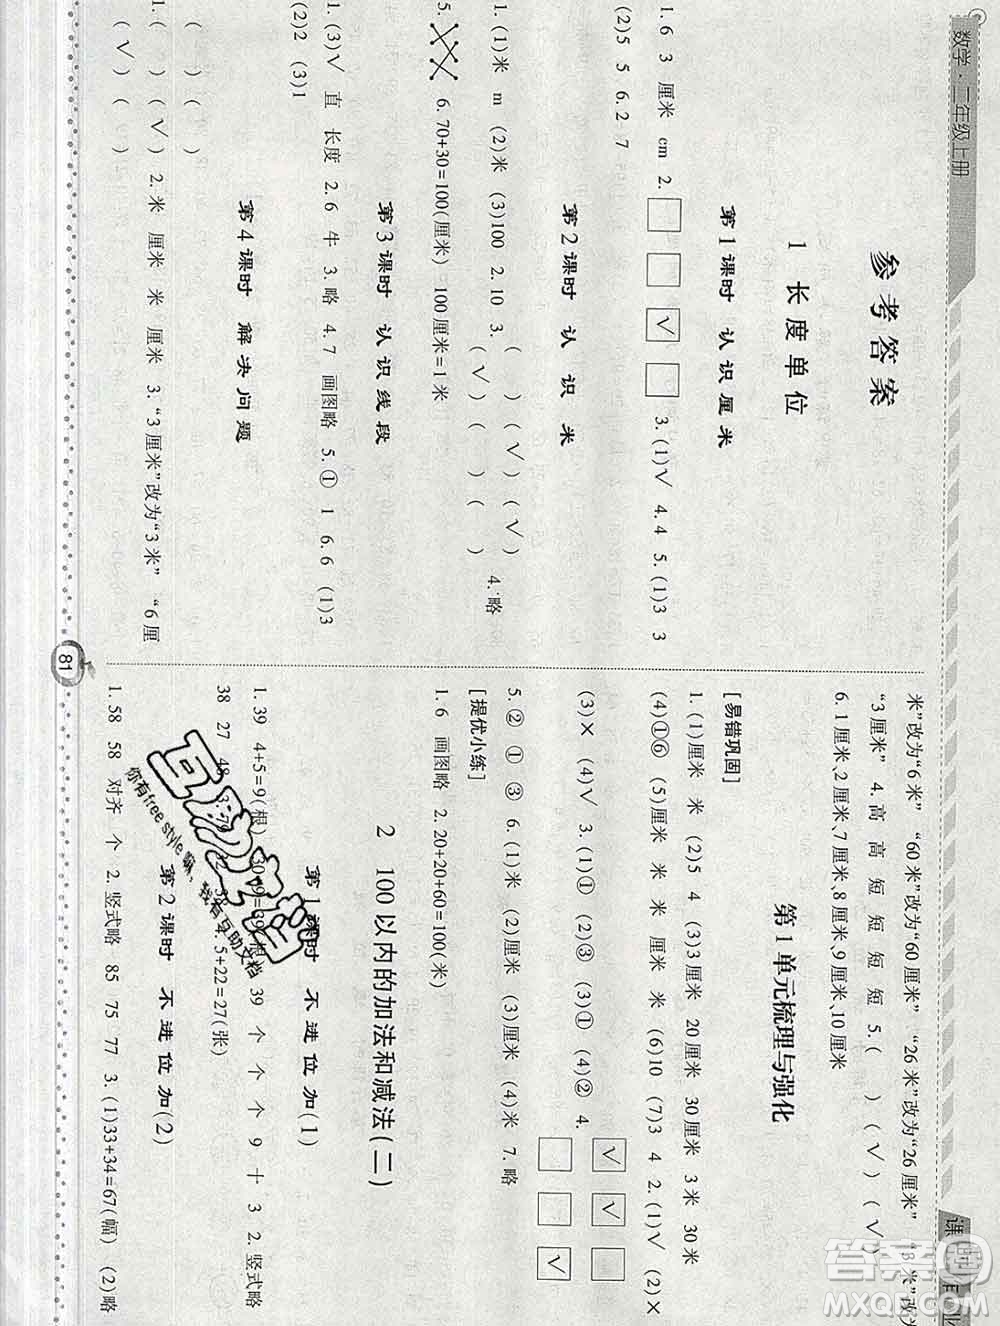 数学·二年级上册
参考答案
1 长度单位
第1课时 认识厘米
1. 6 3 厘米 cm 2. □ □ ☑ □ 3. (1)√ 4. 4 5. (1)3 3
(2)5 5 6. 2 7
第2课时 认识米
1. (1)米 m (2)米 (3)100 2. 10 3. ( ) (√) (√)
(√) ( ) ( ) 4. 略
5. 6. 70+30=100(厘米) 100厘米=1米
第3课时 认识线段
1. (3)√ 直 长度 2. 6 牛 3. 略 4. 7 画图略 5. ① 1 6. 6 (1)3
(2)2 (3)1
第4课时 解决问题
1. ( ) (√) 2. 米 厘米 米 厘米 3. “3厘米”改为“3米” “6厘
米”改为“6米” “60米”改为“60厘米” “26米”改为“26厘米” 米”改为
“3厘米” 4. 高 高 短 短 短 5. ( ) (√) (√)
6. 1厘米、2厘米、7厘米、8厘米、9厘米、10厘米
第1单元梳理与强化
[易错巩固]
1. (1)厘米 米 (2)5 4 (3)3厘米 20厘米 30厘米 30米
(4)①⑥ (5)厘米 米 米 厘米 米 (6)10 (7)3 4 2. (1)√ (2)×
(3)× (4)√ 3. (1)① (2)③ (3)① (4)② 4. ☑ ☑ □
□ □ ☑
5. ② ① ③ 6. (1)米 (2)厘米 (3)厘米 (4)米 7. 略
[提优小练]
1. 6 画图略 2. 20+20+60=100(米)
2 100以内的加法和减法(二)
第1课时 不进位加(1)
1. 39 4+5=9(根) 30+9=39(根) 39 个 个 个 9 十 3 2. 竖式略
38 27 48 5+22=27(张)
第2课时 不进位加(2)
1. 58 58 对齐 个 2. 竖式略 85 75 77 3. (1)33+34=67(幅) (2)略
81
互助文档
你有free style嘛，我有互助文档
答案圈
MXQE.COM